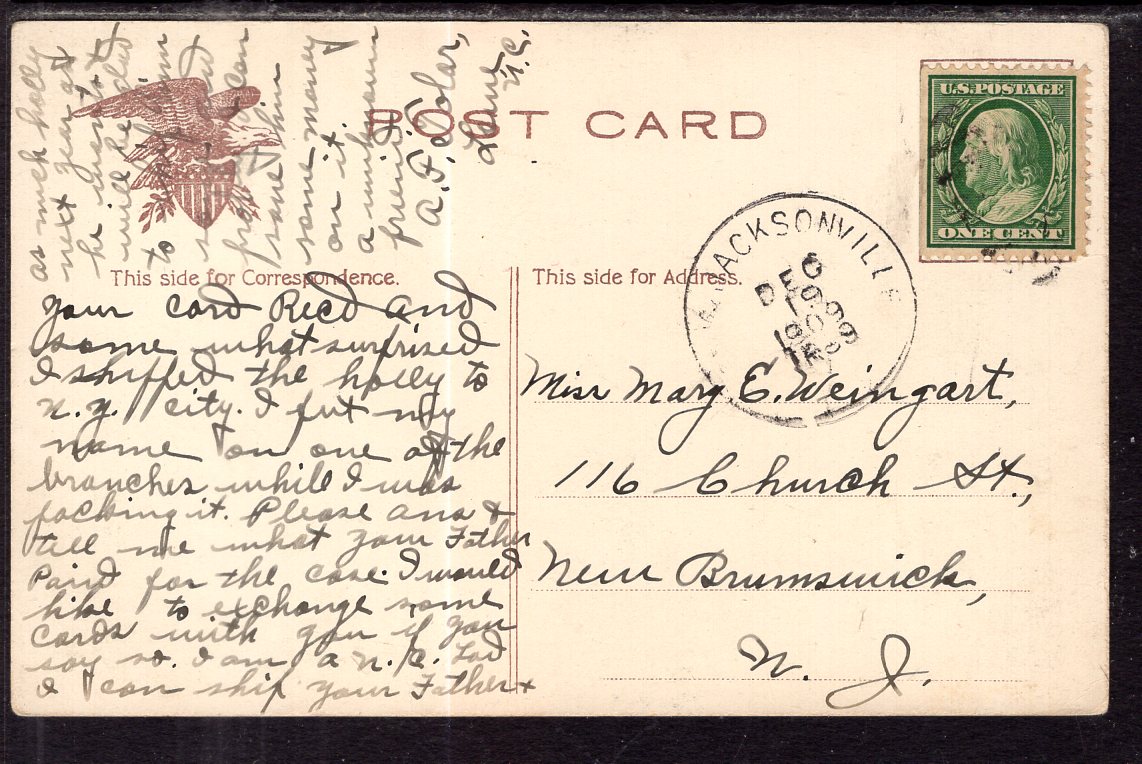 POST CARD
U.S. POSTAGE
ONE CENT
JACKSONVILLE
DEC
19
1909
This side for Correspondence.
This side for Address.
your card Recd and
some what surprised
I shipped the holly to
N.Y. city. I put my
name on one of the
branches while I was
packing it. Please ans &
tell me what your Father
Paid for the case. I would
like to exchange some
cards with you if you
say so. I am a N.C. Lad
I can ship your Father
as much holly
next year as
he wants &
will be glad
to
can
save him
some money
on it.
a unknown
friend
A. F.
N.C.
Miss Mary E. Weingart,
116 Church St.,
New Brumswick,
N. J.